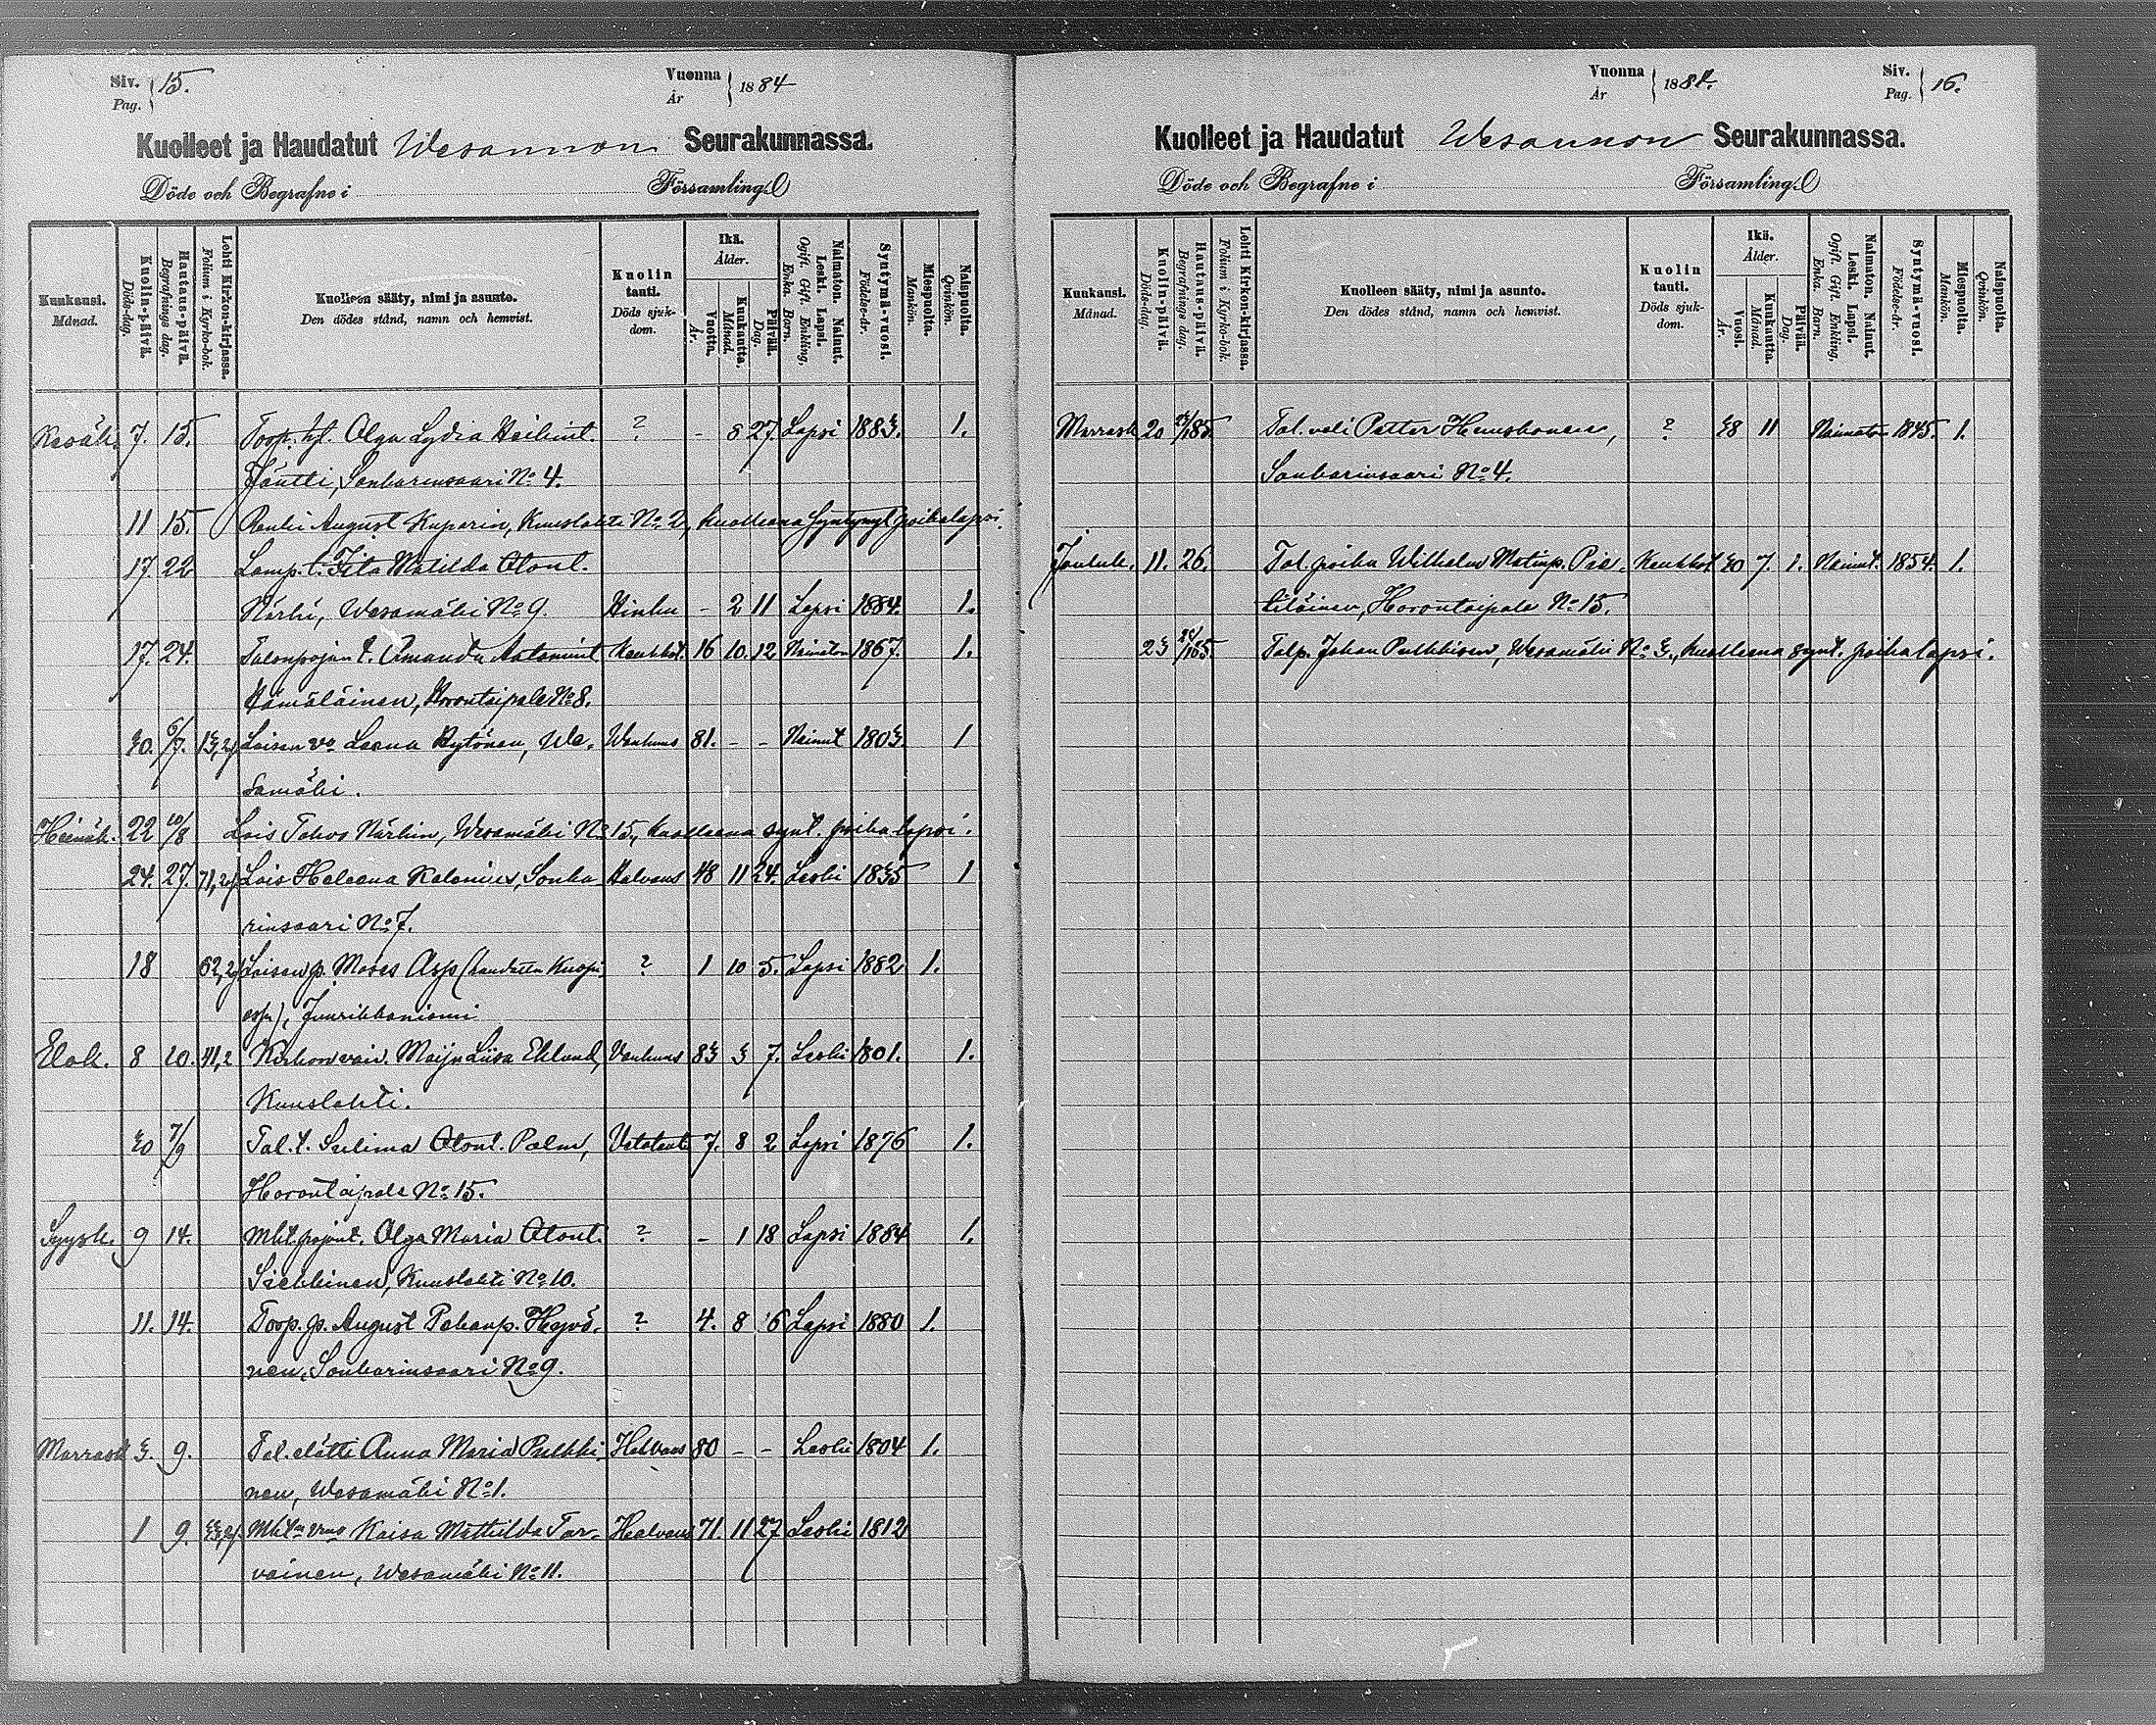 Siv. 15.
Pag.
Vuonna 1884
År
Kuolleet ja Haudatut Wesannon Seurakunnassa.
Döde och Begrafne i Församling.
Kuukausi. Månad.
Kuolin-päivä. Döds-dag.
Hautaus-päivä. Begrafnings dag.
Lehti Kirkon-kirjassa. Folium i Kyrko-bok.
Kuolleen sääty, nimi ja asunto.
Den dödes stånd, namn och hemvist.
Kuolin tauti. Döds sjukdom.
Ikä. Ålder.
Vuotta. År.
Kuukautta. Månad.
Päivää. Dag.
Naimaton. Nainut. Leski. Lapsi. Ogift. Gift. Enkling, Enka. Barn.
Syntymä-vuosi. Födelse-år.
Miespuolta. Mankön.
Naispuolta. Qvinkön.
Kesäk. 7. 15. Olga Lydia ? - 8 27 Lapsi 1883. 1.
Jäntti, Sonkarinsaari No 4.
11 15. Renki August Kuparin, Kuuslahti No 2, kuolleena syntynyt poikalapsi.
17. 22 Lamp. t. Iita Matilda
Närhi, Wesamäki No 9. Hinku - 2 11 Lapsi 1884. 1.
17. 24. Talonpojan t. Amanda Keuhkot. 16 10. 12 Naimaton 1867. 1.
Hämäläinen, Horontaipale No 8.
30. 6/7. Loisen vo Leena Rytönen, We- Wanhuus 81. - - Nainut 1803. 1
samäki.
Heinäk. 22 10/8 Lois Tahvo Närhin, Wesamäki No 15, kuolleena synt. poikalapsi.
24. 27. Lois Heleena Sonka- Halvaus 48 11 24. Leski 1835 1
rinsaari No 7.
18 Loisen p. Moses Asp (haudattu ? 1 10 5. Lapsi 1882 1.
Juurikkaniemi
Elok. 8 10. 41,2 Maija Liisa Eklund, Vanhuus 83 3 7. Leski 1801. 1.
Kuuslahti.
30 7/9 Tal. t. Selima Palm, Vetotauti 7. 8 2 Lapsi 1876 1.
Horontaipale No 15.
Syysk. 9 14. Olga Maria ? - 1 18 Lapsi 1884 1.
Siekkinen, Kuuslahti No 10.
11. 14. Torp. p. August Hyvö- ? 4. 8 6 Lapsi 1880 1.
nen, Sonkarinsaari No 9.
Marrask. 3. 9. Tal. elätti Anna Maria Pulkki- Halvaus 80 - - Leski 1804 1.
nen, Wesamäki No 1.
1 9. Kaisa Mathilda Tar- Halvaus 71. 11 27 Leski 1812
vainen, Wesamäki No 11.
Vuonna 1884.
År
Siv. 16.
Pag.
Kuolleet ja Haudatut Wesannon Seurakunnassa.
Döde och Begrafne i Församling.
Kuukausi. Månad.
Kuolin-päivä. Döds-dag.
Hautaus-päivä. Begrafnings dag.
Lehti Kirkon-kirjassa. Folium i Kyrko-bok.
Kuolleen sääty, nimi ja asunto.
Den dödes stånd, namn och hemvist.
Kuolin tauti. Döds sjukdom.
Ikä. Ålder.
Vuosi. År.
Kuukautta. Månad.
Päivää. Dag.
Naimaton. Nainut. Leski. Lapsi. Ogift. Gift. Enkling, Enka. Barn.
Syntymä-vuosi. Födelse-år.
Miespuolta. Mankön.
Naispuolta. Qvinkön.
Marrask 20 Tal. veli Petter ? 38 11 Naimaton 1845. 1.
Sonkarinsaari No 4.
Jouluk. 11. 26. Tal. poika Wilhelm Matinp. Pie- Keuhkot 30 7. 1. Nainut. 1854. 1.
tiläinen, Horontaipale No 15.
23 Talp. Johan Pulkkisen, Wesamäki No 3., kuolleena synt. poikalapsi.